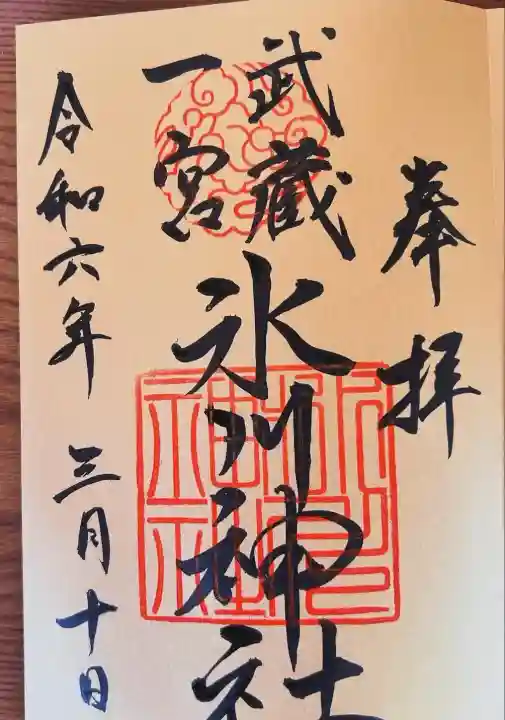 奉拝
武蔵
一宮
氷川神社
令和六年 三月十日